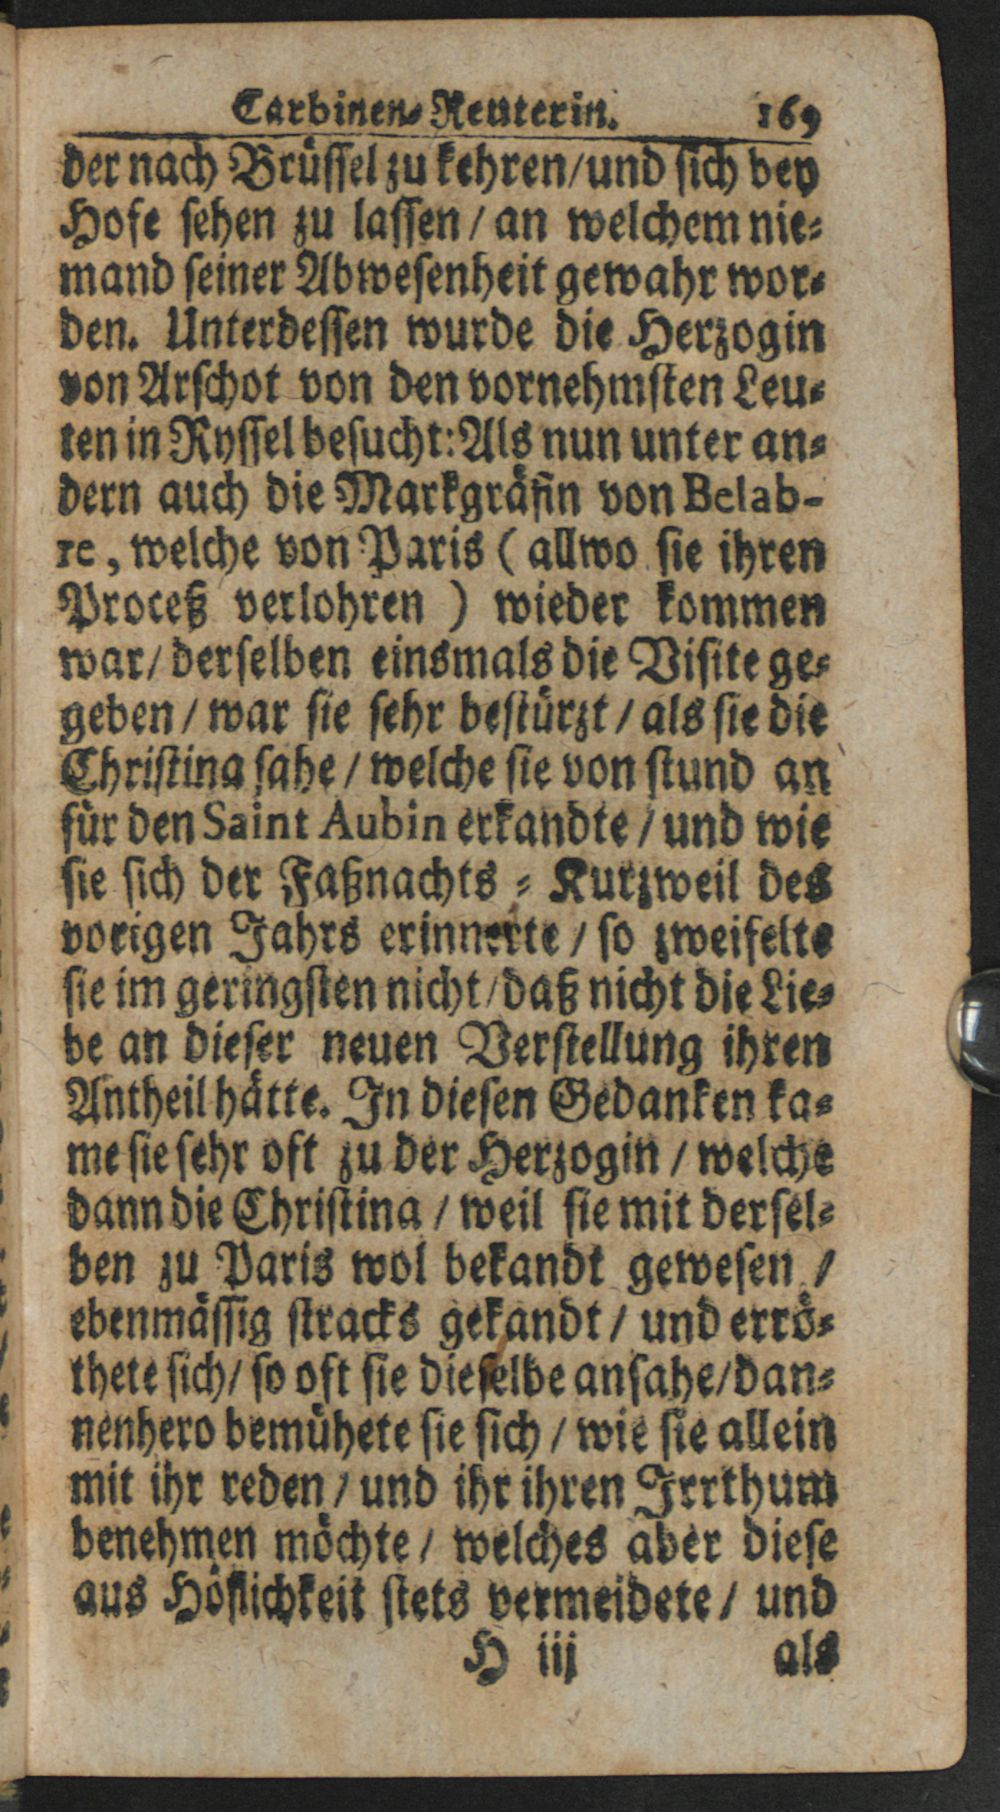 Carbinen-Reuterin. 169
der nach Brüssel zu kehren/und sich bey
Hofe sehen zu lassen / an welchem nie-
mand seiner Abwesenheit gewahr wor-
den. Unterdessen wurde die Herzogin
von Arschot von den vornehmsten Leu-
ten in Ryssel besucht: Als nun unter an-
dern auch die Markgräfin von Belab-
re, welche von Paris ( allwo sie ihren
Proceß verlohren ) wieder kommen
war/ derselben einsmals die Visite ge-
geben / war sie sehr bestürzt / als sie die
Christina sahe / welche sie von stund an
für den Saint Aubin erkandte / und wie
sie sich der Faßnachts - Kurzweil des
vorigen Jahrs erinnerte / so zweifelte
sie im geringsten nicht/daß nicht die Lie-
be an dieser neuen Verstellung ihren
Antheil hätte. In diesen Gedanken ka-
me sie sehr oft zu der Herzogin / welche
dann die Christina / weil sie mit dersel-
ben zu Paris wol bekandt gewesen /
ebenmässig stracks gekandt / und errö-
thete sich/ so oft sie dieselbe ansahe/dan-
nenhero bemühete sie sich / wie sie allein
mit ihr reden / und ihr ihren Irrthum
benehmen möchte / welches aber diese
aus Höflichkeit stets vermeidete / und
H iij als